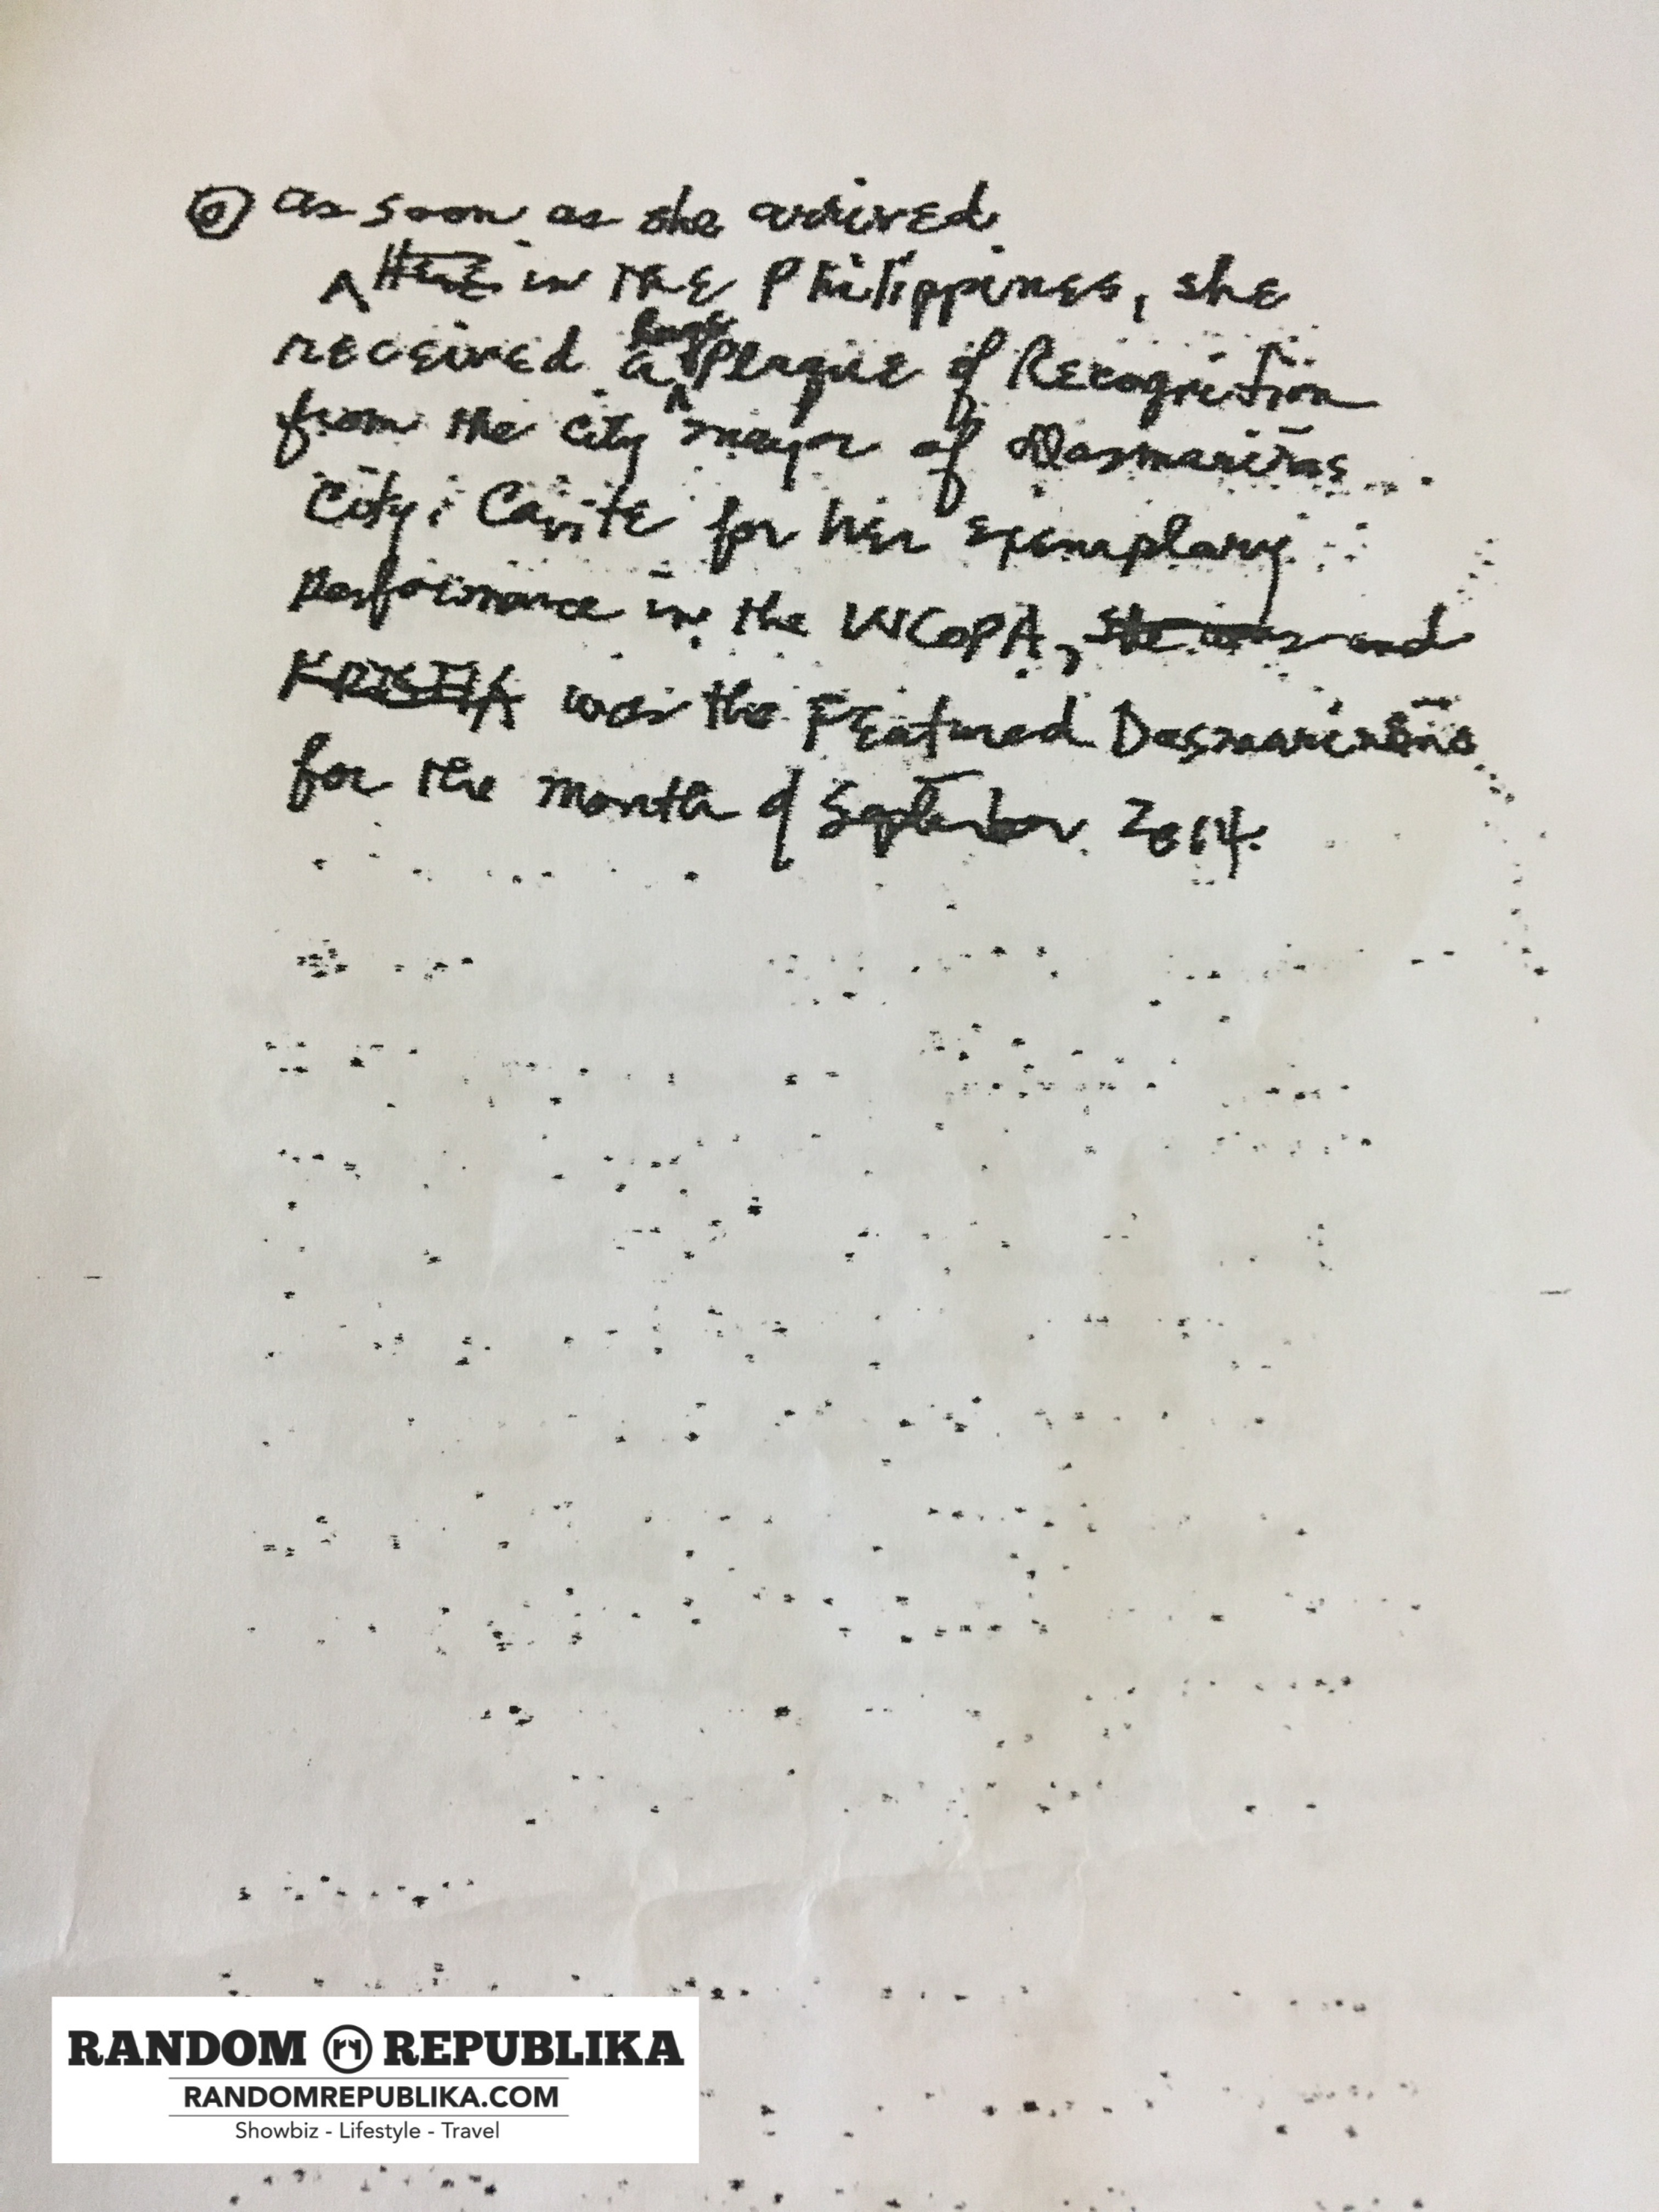 as soon as she arrived
^ Here in the Philippines, she
huge
received a ^ Plaque of Recognition
from the city mayor of Dasmariñas
City, Cavite for her exemplary
performance in the WCOPA, she was and
KRISTIA was the Featured Dasmarineño
for the month of September 2014.
RANDOM REPUBLIKA
RANDOMREPUBLIKA.COM
Showbiz - Lifestyle - Travel